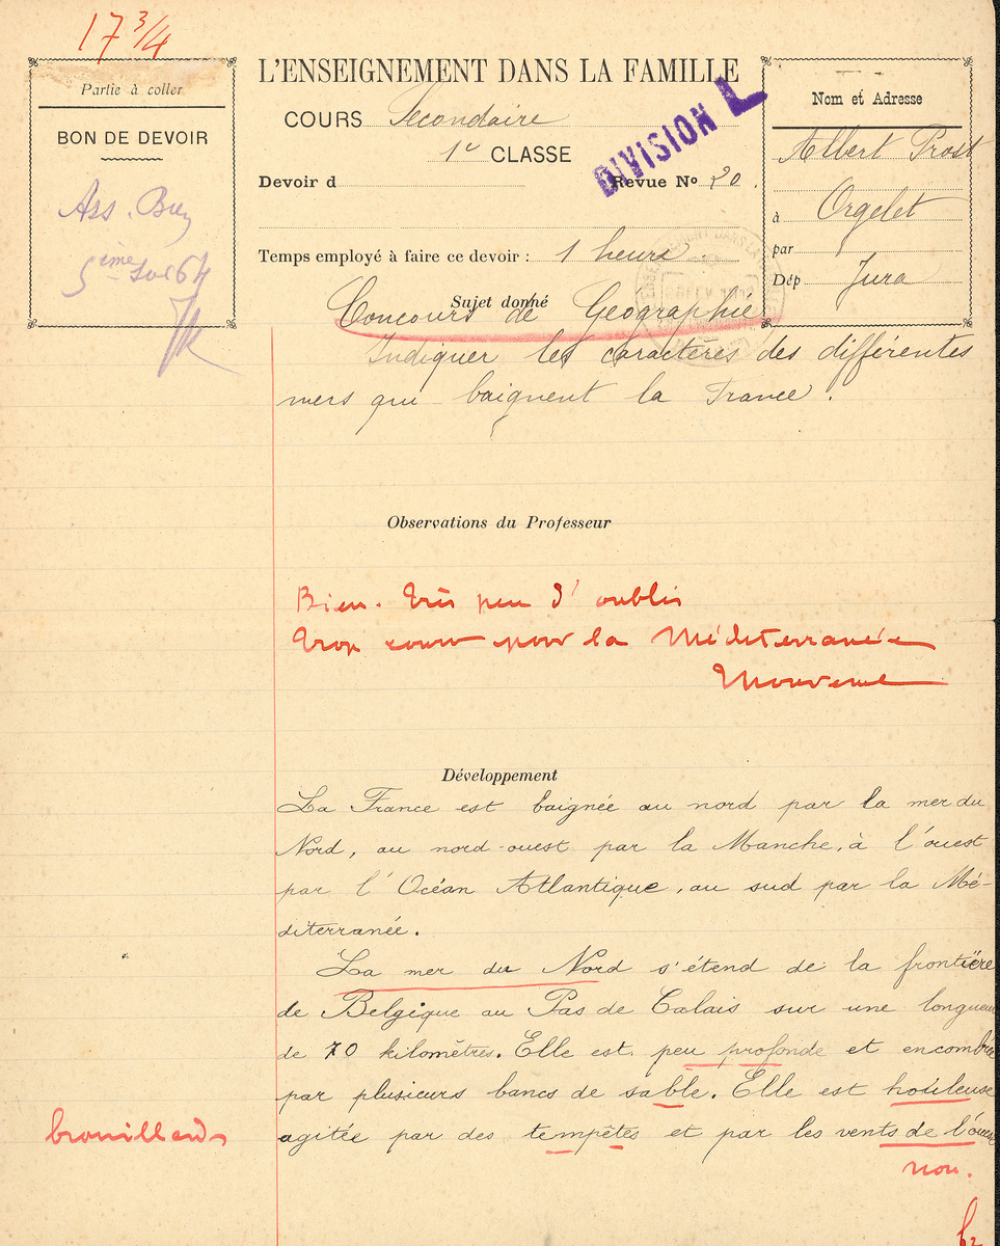 17 3/4
Partie à coller
BON DE DEVOIR
5ème
L'ENSEIGNEMENT DANS LA FAMILLE
COURS Secondaire
1e CLASSE
DIVISION L
Devoir d
Revue No 20
Temps employé à faire ce devoir : 1 heure
Nom et Adresse
Albert Prost
à Orgelet
par
Dép Jura
Sujet donné
Concours de Géographie
Indiquer les caractères des différentes
mers qui baignent la France.
Observations du Professeur
Bien. Très peu d'oublis
Trop court pour la Méditerranée
Développement
La France est baignée au nord par la mer du
Nord, au nord-ouest par la Manche, à l'ouest
par l'Océan Atlantique, au sud par la Mé-
diterranée.
La mer du Nord s'étend de la frontière
de Belgique au Pas de Calais sur une longueur
de 70 kilomètres. Elle est peu profonde et encombrée
par plusieurs bancs de sable. Elle est houleuse
brouillards
agitée par des tempêtes et par les vents de l'ouest
non.